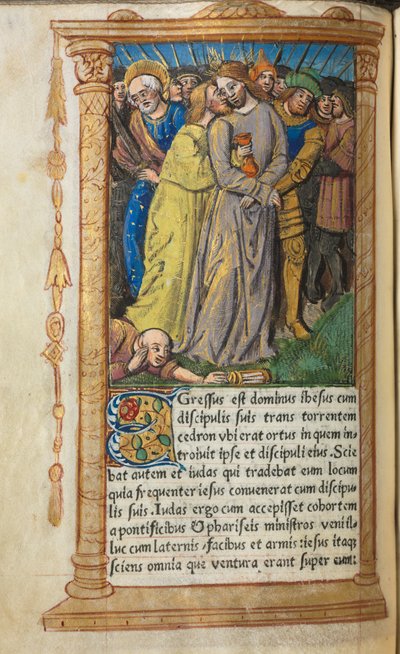 EGressus est dominus ihesus cum
discipulis suis trans torrentem
cedron vbi erat ortus in quem in-
troiuit ipse et discipuli eius. Scie
bat autem et iudas qui tradebat eum locum
quia frequenter iesus conuenerat cum discipu
lis suis. Iudas ergo cum accepisset cohortem
a pontificibus & phariseis ministros venit il
luc cum laternis, facibus et armis: iesus itaq;
sciens omnia que ventura erant super eum: